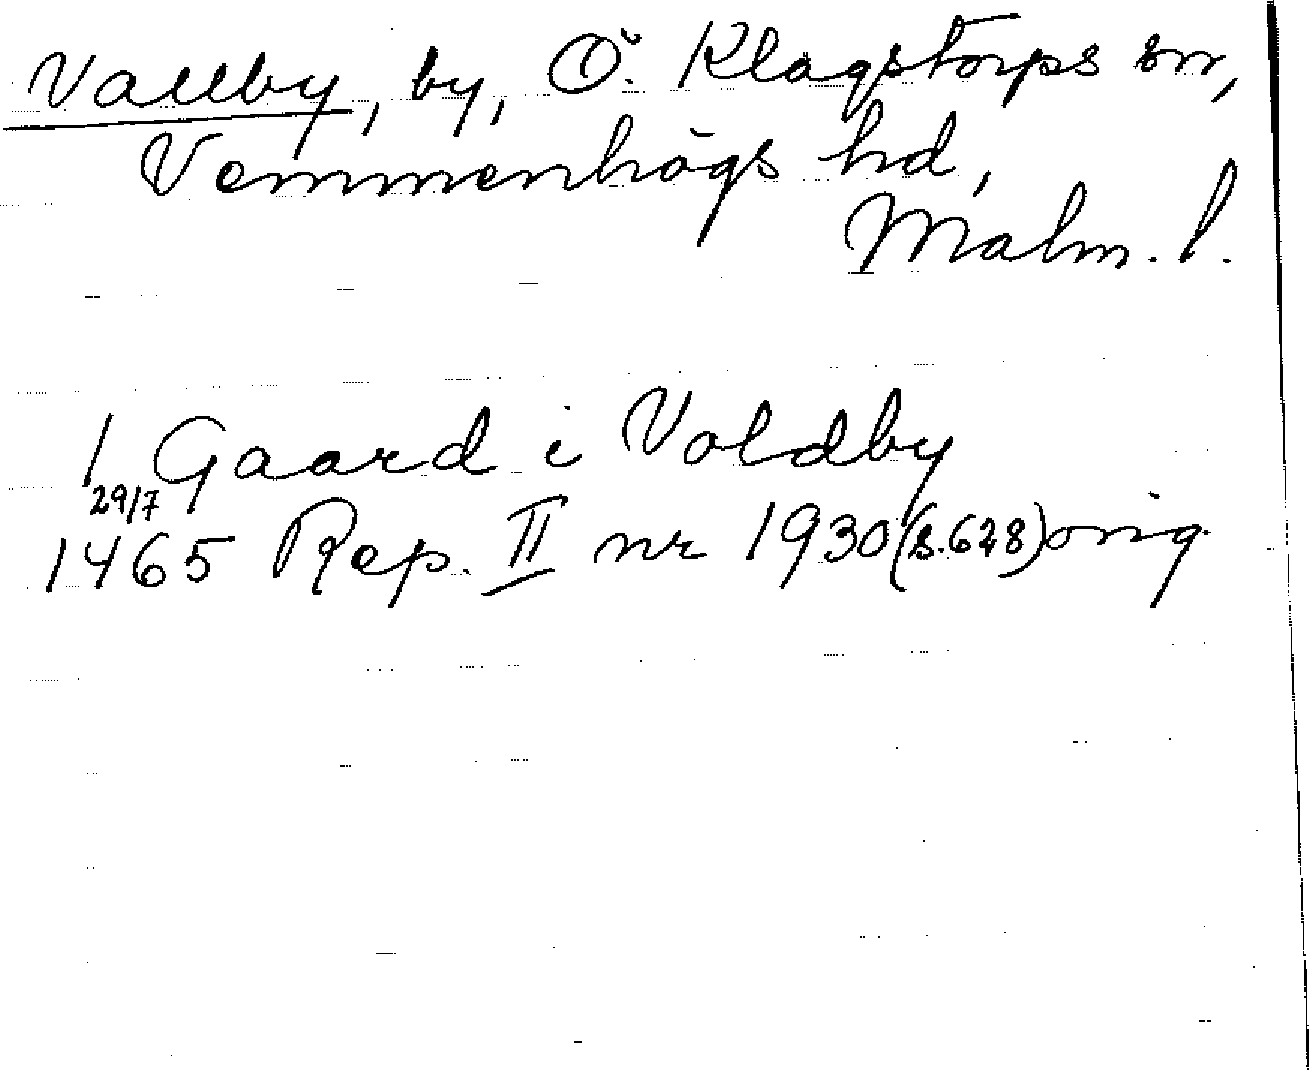 Vallby, by, Ö. Klagstorps sn,
Vemmenhögs hd,
Malm. l.
1 Gaard i Voldby
29/7
1465 Rep. II nr 1930 (s. 628) orig.